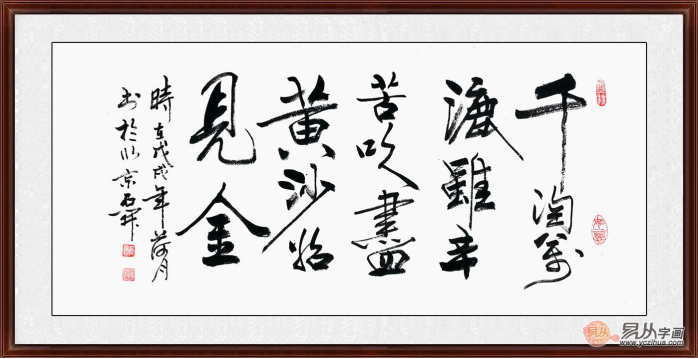 千淘萬
漉雖辛
苦吹盡
黄沙始
見金
時在戊戌年荷月
书於北京石
易从
易从字画
www.yczihua.com